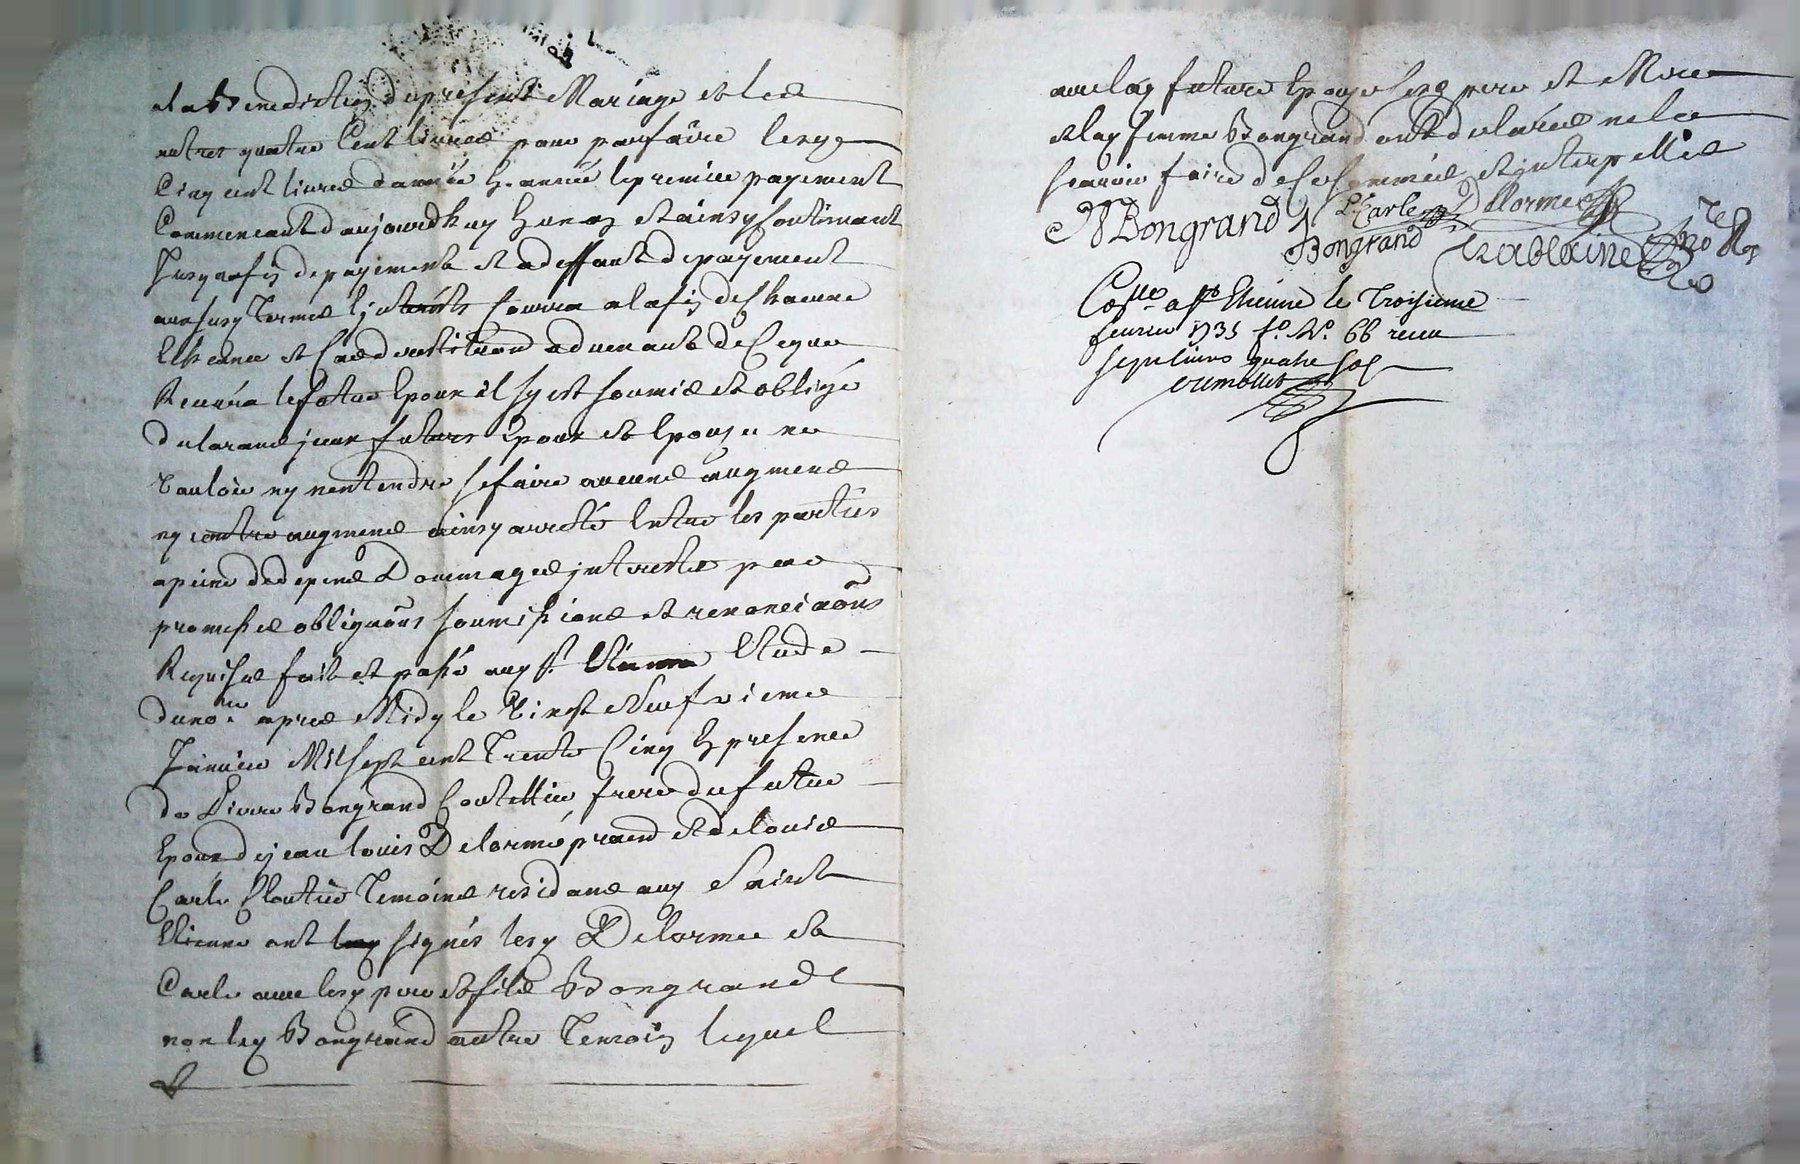 a la Benediction du present Mariage et les
autres quatre Cent livres pour parfaire lesd
Cinq cent livres d'année En année le premier payement
Commencant d'aujourdhuy En un an et ainsy Continuant
Jusqu'a fin de payement et a deffaut de payement
auxsusd Termes l'jnterests Courra a la fin de Chacune
Echeance et Cas de restituon advenant de Ce que
Recevra le futur Epoux il s'y est soumis et obligé
declarans jceux futurs Epoux et Epouse ne
Vouloir ny n'entendre se faire aucuns augmens
ny contre augmens ainsy arresté Entre les parties
a peine de depens Dommages jnterests par
promesses obligaons soumissions et renonciaons
Requises fait et passé aud St Etienne Etude
du no.re apres Midy le Vingt Neufvieme
Janvier Mil sept cent Trente Cinq En presence
de Pierre Bongrand Coutellier frere du futur
Epoux de jean louis Delorme praen et de louis
Carle Cloutier Temoins residans aud Saint
Etienne ont signés lesd Delorme et
Carle avec lesd pere et fils Bongrand
non led Bongrand autre Temoin lequel
avec lad future Epouse ses pere et Mere
et lad femme Bongrand ont declarés ne le
scavoir faire de Ce sommés et interpellés
N Bongrand
L Carle
Delorme
Bongrand
Coll.é a St Etienne le Troisieme
fevrier 1735 f.o R.o 66 receu
sept livres quatre sols